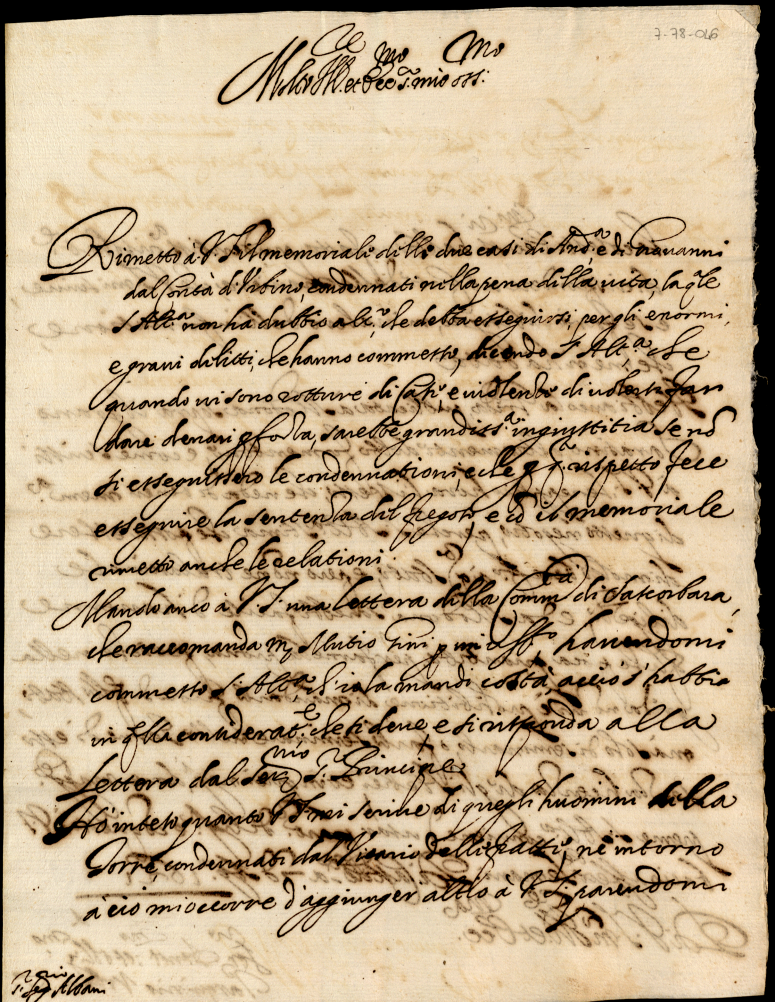 7-78-046
Molto Ill.re et Ecc.mo S.r mio oss.mo
Rimetto à V.S. il memoriale delle due casi di And.a e di Giovanni
dal Contà d'Urbino, condennati nella pena della vita, la q.le
S. Alt.a non hà dubbio alc.o, che debba esseguirsi, per gli enormi,
e gravi delitti, che hanno commesso, dicendo S. Alt.a che
quando vi sono rotture di Case, e violenze di volersi far
dare denari p forza, sarebbe grandiss.a ingiustitia se nō
si essequissero le condennationi, e che p q.o rispetto fece
esseguire la sentenza del fregoso, e cō il memoriale
rimetto anche le relationi.
Mando anco à V.S. una lettera della Comm.tà di Satcorbara,
che raccomanda m. Mutio Tini p un uff.o, havendomi
commesso S. Alt.a, ch'io la mandi costà, acciò s'habbia
in q.lla considerat.e che si deve, e si risponda alla
Lettera dal Ser.mo S.r Principe.
Hò inteso quanto V.S. mi scrive di quegli huomini della
Torre, condennati dal Vicario delli fatti, nè intorno
à ciò mi occorre d'aggiunger altro à V.S. parendomi
S.r Seg.rio Albani